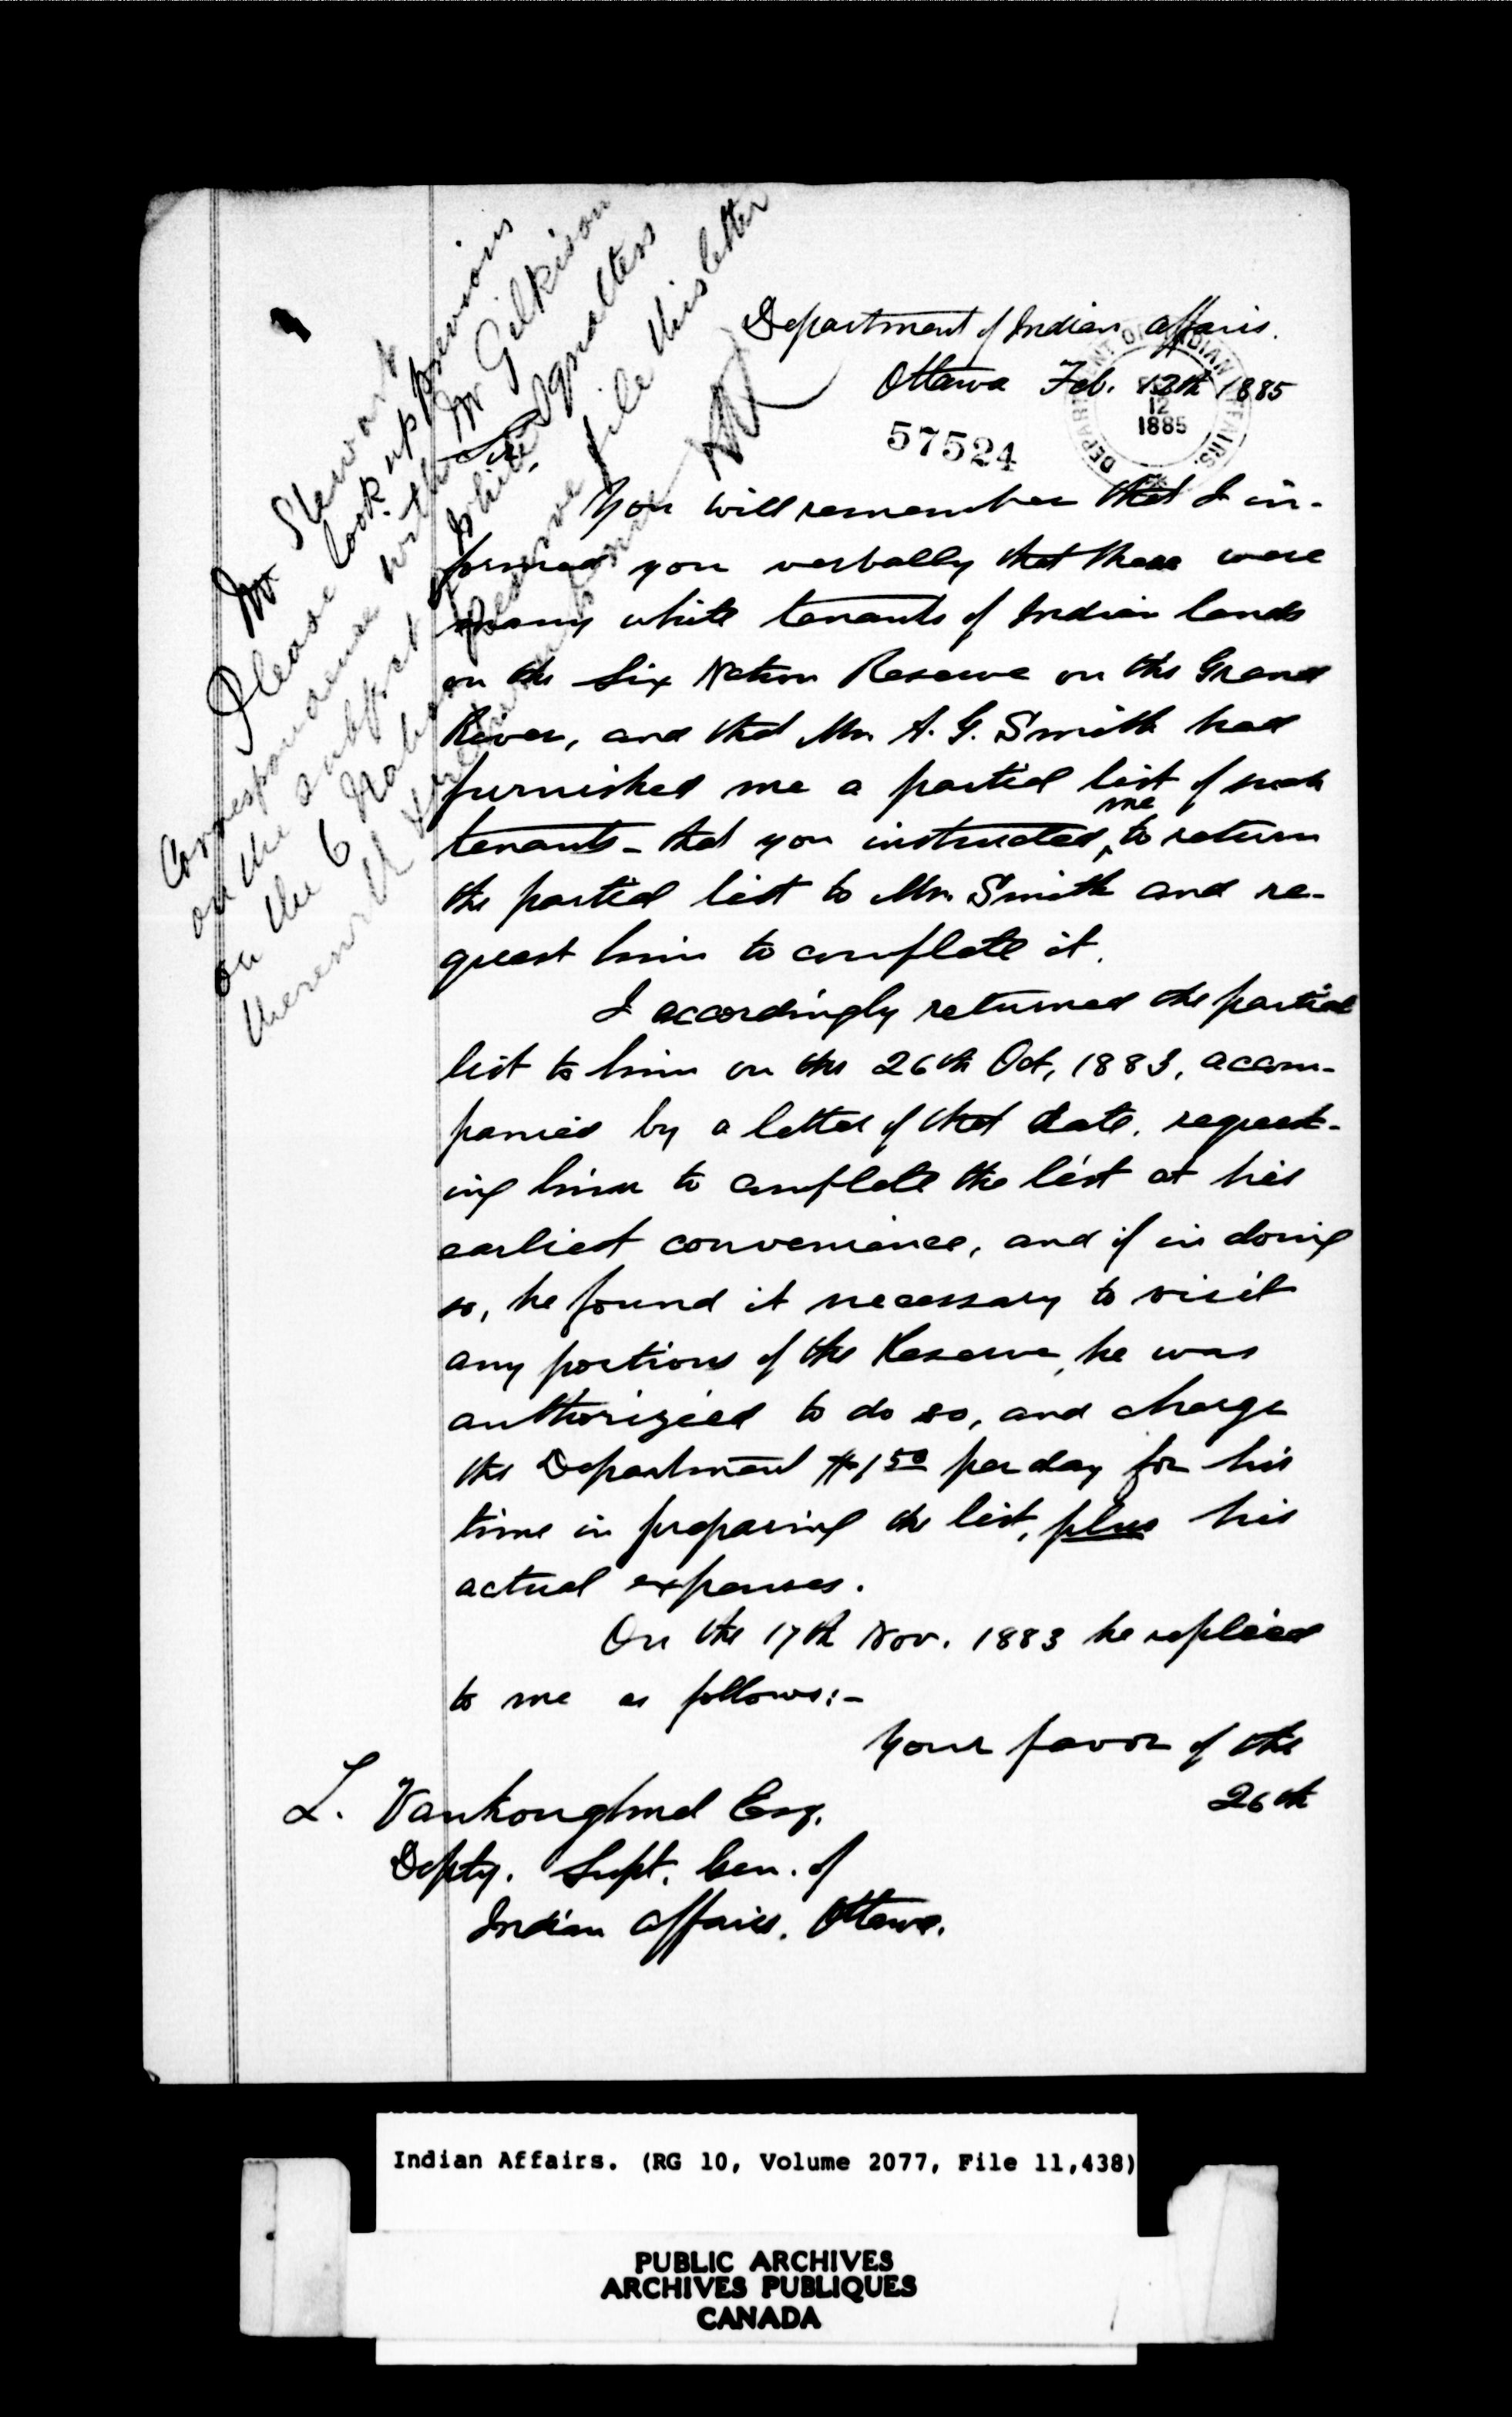 Mr Stewart
Please look up previous
correspondence with Mr Gilkison
on the subject of white squatters
on the 6 Nation Reserve file this letter
therewith
Department of Indian Affairs.
Ottawa Feb. 12th 1885
DEPARTMENT OF INDIAN AFFAIRS.
12
1885
57524
Sir,
You will remember that I in-
formed you verbally that there were
many white tenants of Indian lands
on the Six Nation Reserve on the Grand
River, and that Mr. A. G. Smith had
furnished me a partial list of such
tenants - that you instructed me to return
the partial list to Mr. Smith and re-
quest him to complete it.
I accordingly returned the partial
list to him on the 26th Oct, 1883, accom-
panied by a letter of that date, request-
ing him to complete the list at his
earliest convenience, and if in doing
so, he found it necessary to visit
any portions of the Reserve, he was
authorized to do so, and charge
the Department $1 50 per day for his
time in preparing the list, plus his
actual expenses.
On the 17th Nov. 1883 he replied
to me as follows:-
Your favor of the
26th
L. Vankoughnet Esq.
Depty. Supt. Gen. of
Indian Affairs. Ottawa.
Indian Affairs. (RG 10, Volume 2077, File 11,438)
PUBLIC ARCHIVES
ARCHIVES PUBLIQUES
CANADA